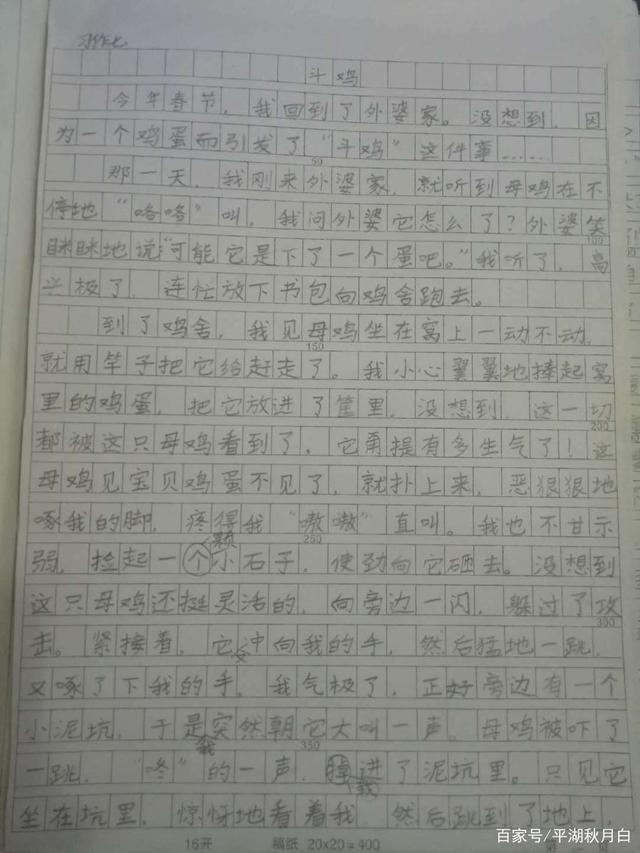 习作七
斗鸡
今年春节，我回到了外婆家。没想到，因
为一个鸡蛋而引发了“斗鸡”这件事……
50
那一天，我刚来外婆家，就听到母鸡在不
停地“咯咯”叫，我问外婆它怎么了？外婆笑
100
眯眯地说“可能它是下了一个蛋吧。”我听了，高
兴极了，连忙放下书包向鸡舍跑去。
到了鸡舍，我见母鸡坐在窝上一动不动，
150
就用竿子把它给赶走了。我小心翼翼地捧起窝
里的鸡蛋，把它放进了筐里，没想到，这一切
200
都被这只母鸡看到了，它甭提有多生气了！这
母鸡见宝贝鸡蛋不见了，就扑上来，恶狠狠地
啄我的脚，疼得我“嗷嗷”直叫。我也不甘示
250
颗
弱，捡起一个小石子，使劲向它砸去。没想到
这只母鸡还挺灵活的，向旁边一闪，躲过了攻
300
击。紧接着，它冲向我的手，然后猛地一跳，
又
又啄了下我的手。我气极了，正好旁边有一个
小泥坑，于是突然朝它大叫一声。母鸡被吓了
我
350
一跳，“咚”的一声，掉进了泥坑里。只见它
栽
坐在坑里，惊讶地看着我，然后跳到了地上，
16开 稿纸 20x20=400
百家号/平湖秋月白